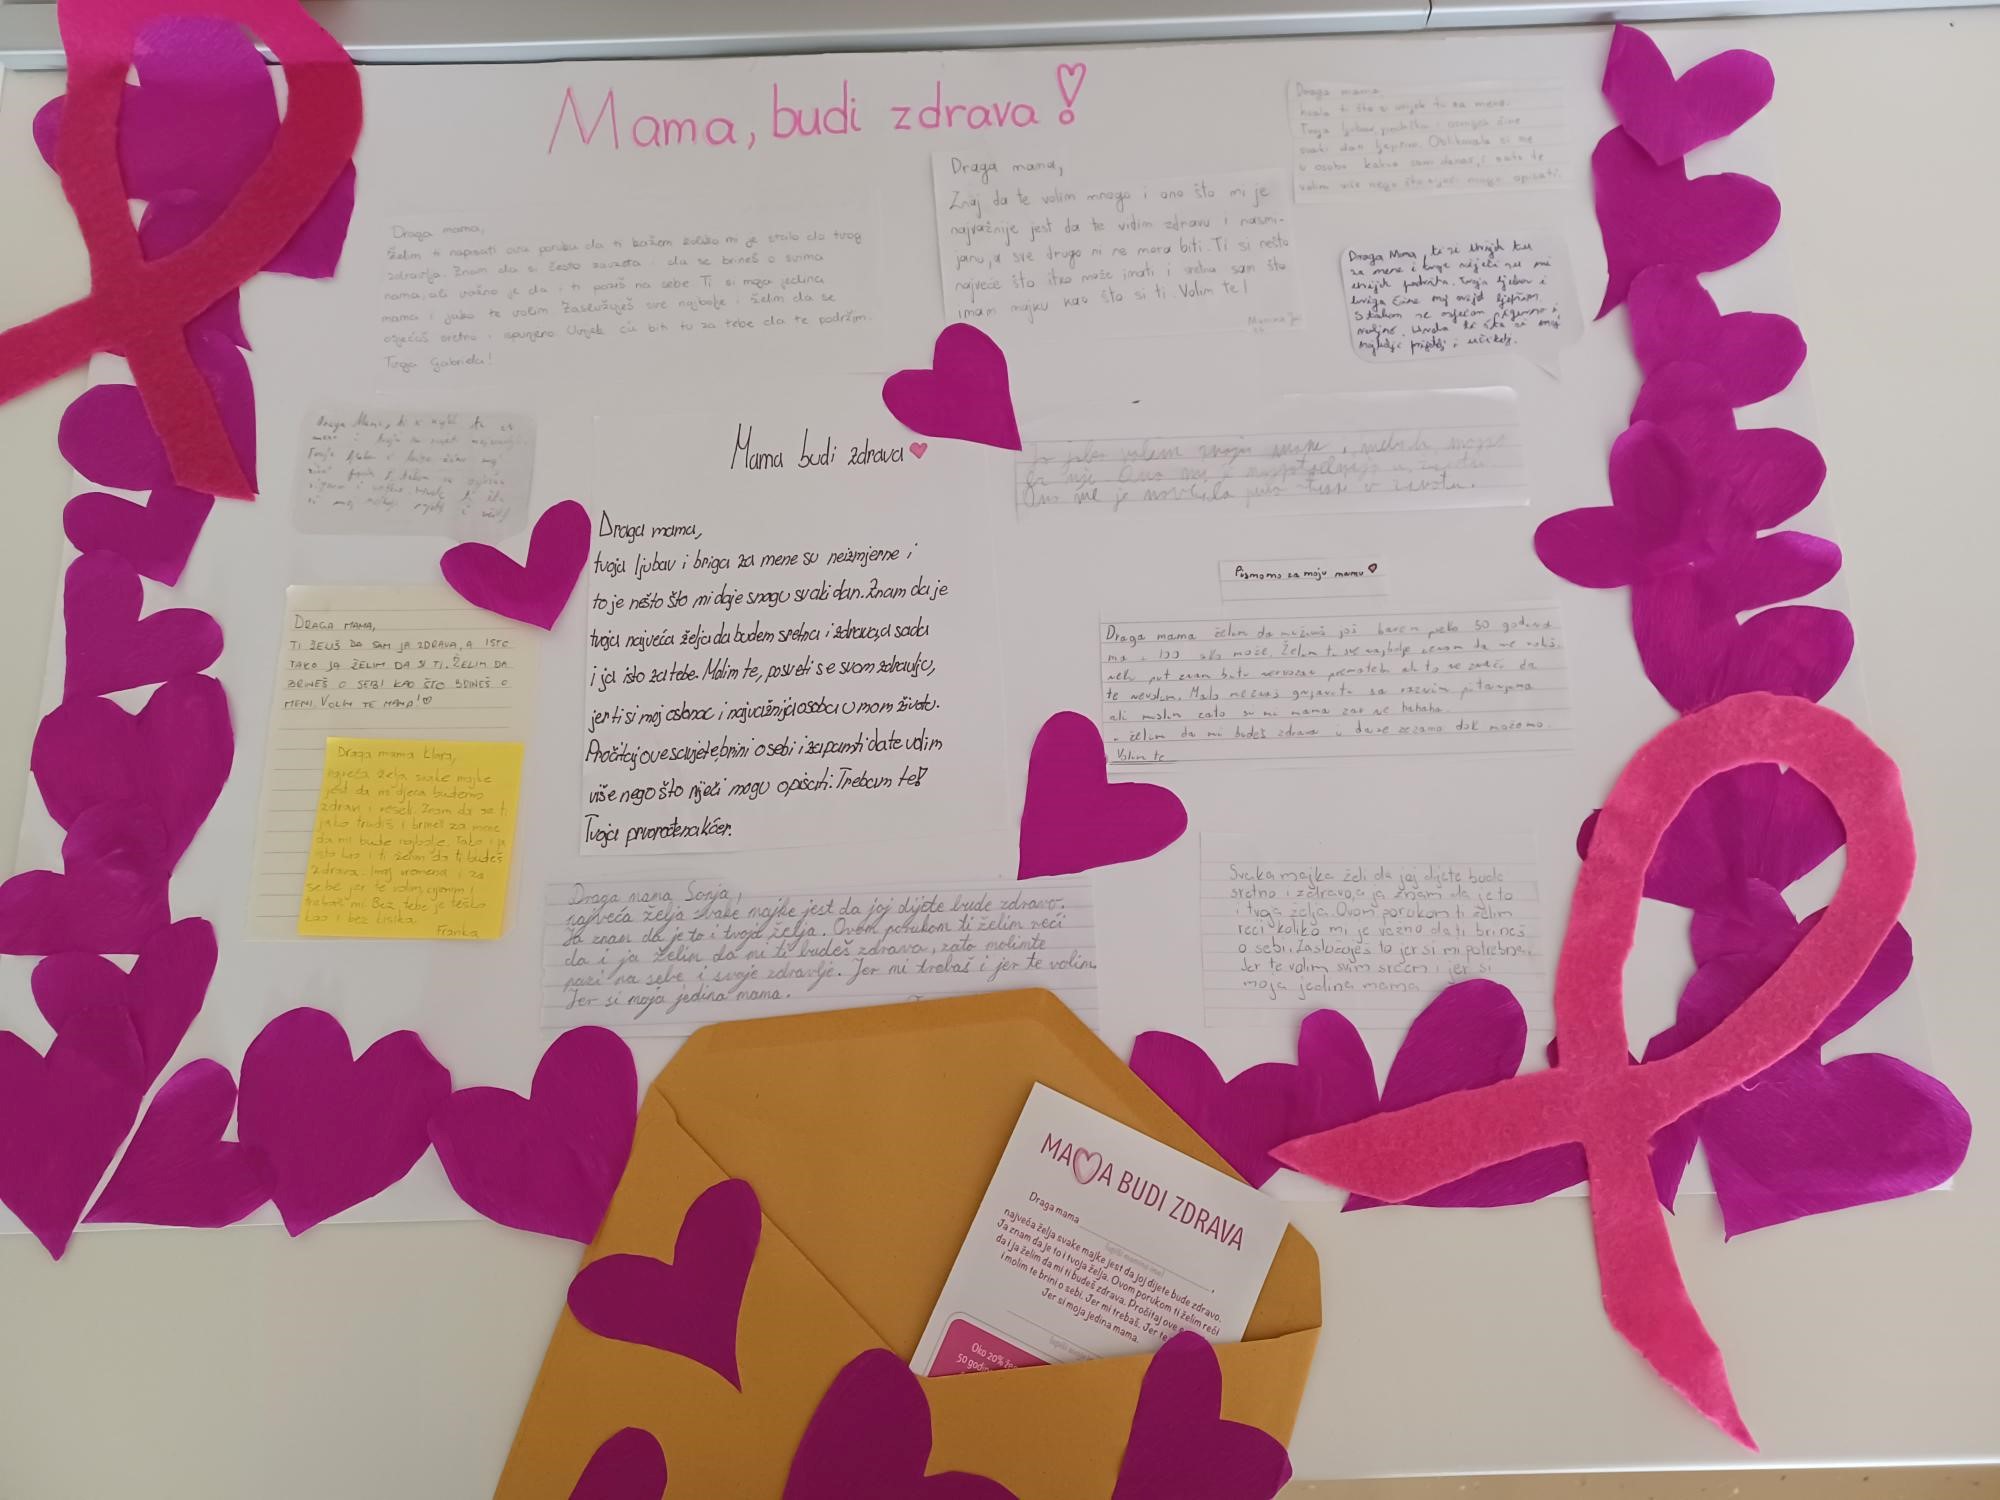 Mama, budi zdrava!
Draga mama,
hvala ti što si uvijek tu za mene.
Tvoja ljubav, podrška i osmijeh čine
svaki dan ljepšim. Oblikovala si me
u osobu kakva sam danas, i zato te
volim više nego što riječi mogu opisati.
Draga mama,
Znaj da te volim mnogo i ono što mi je
najvažnije jest da te vidim zdravu i nasmi-
janu, a sve drugo ni ne mora biti. Ti si nešto
najveće što itko može imati i sretna sam što
imam majku kao što si ti. Volim te!
Draga mama,
želim ti napisati ovu poruku da ti kažem koliko mi je stalo do tvog
zdravlja. Znam da si često zauzeta i da se brineš o svima
nama, ali važno je da i ti paziš na sebe. Ti si moja jedina
mama i jako te volim. Zaslužuješ sve najbolje i želim da se
osjećaš sretno i ispunjeno. Uvijek ću biti tu za tebe da te podržim.
Tvoja Gabriela!
Draga Mama, ti si uvijek tu
za mene i tvoje riječi su mi
uvijek podrška. Tvoja ljubav i
briga čine moj svijet ljepšim.
S tobom se osjećam sigurno i
voljeno. Hvala ti što si moj
najbolji prijatelj i učitelj.
Draga Mama, ti si uvijek tu za
mene i
Tvoja ljubav i briga čine moj
S tobom se osjećam
sigurno i voljeno. Hvala ti što
si moj najbolji prijatelj i učitelj
Mama budi zdrava
Draga mama,
tvoja ljubav i briga za mene su neizmjerne i
to je nešto što mi daje snagu svaki dan. Znam da je
tvoja najveća želja da budem sretna i zdrava, a sada
i ja isto za tebe. Molim te, posveti se svom zdravlju,
jer ti si moj oslonac i najvažnija osoba u mom životu.
Pročitaj ove savjete, brini o sebi i zapamti da te volim
više nego što riječi mogu opisati. Trebam te!
Tvoja prvorođena kćer.
Ja jako volim svoju mamu,
Ona mi je najpotrebnija u životu
Ona me je naučila puno toga u životu.
DRAGA MAMA,
TI ŽELIŠ DA SAM JA ZDRAVA, A ISTO
TAKO JA ŽELIM DA SI TI. ŽELIM DA
BRINEŠ O SEBI KAO ŠTO BRINEŠ O
MENI. VOLIM TE MAMA!
Draga mama Klara,
najveća želja svake majke
jest da mi djeca budemo
zdravi i veseli. Znam da se ti
jako trudiš i brineš za mene
da mi bude najbolje. Tako i ja
isto kao i ti želim da ti budeš
zdrava. Imaj vremena i za
sebe jer te volim, cijenim i
trebaš mi. Bez tebe je teško
kao i bez kisika.
Franka
Pismomo za moju mamu
Draga mama želim da možeš još barem preko 50 godina
ma i 100 ako može. Želim ti sve najbolje
neki put znam biti nervozan ali to ne znači da
te ne volim. Malo gnjavim sa raznim pitanjima
ali mislim zato su mi mama zar ne hahaha.
želim da mi budeš zdrava i da se zezamo dok možemo.
Volim te
Draga mama Sonja,
najveća želja svake majke jest da joj dijete bude zdravo.
Ja znam da je to i tvoja želja. Ovom porukom ti želim reći
da i ja želim da mi ti budeš zdrava, zato molim te
pazi na sebe i svoje zdravlje. Jer mi trebaš i jer te volim.
Jer si moja jedina mama.
Svaka majka želi da joj dijete bude
sretno i zdravo, a ja znam da je to
i tvoja želja. Ovom porukom ti želim
reći koliko mi je važno da ti brineš
o sebi. Zaslužuješ to jer si mi potrebna.
Jer te volim svim srcem i jer si
moja jedina mama
MAMA BUDI ZDRAVA
Draga mama
(upiši mamino ime)
najveća želja svake majke jest da joj dijete bude zdravo.
Ja znam da je to i tvoja želja. Ovom porukom ti želim reći
da i ja želim da mi ti budeš zdrava. Pročitaj ove
i molim te brini o sebi. Jer mi trebaš. Jer te
Jer si moja jedina mama.
Oko 20%
50